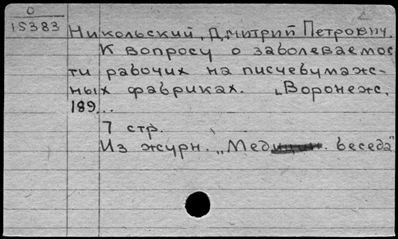 0
15383
Никольский, Дмитрий Петрович.
К вопросу о заболеваемос
ти рабочих на писчебумаж-
ных фабриках. Воронеж,
189...
7 стр.
Из журн. „Мед. беседа"